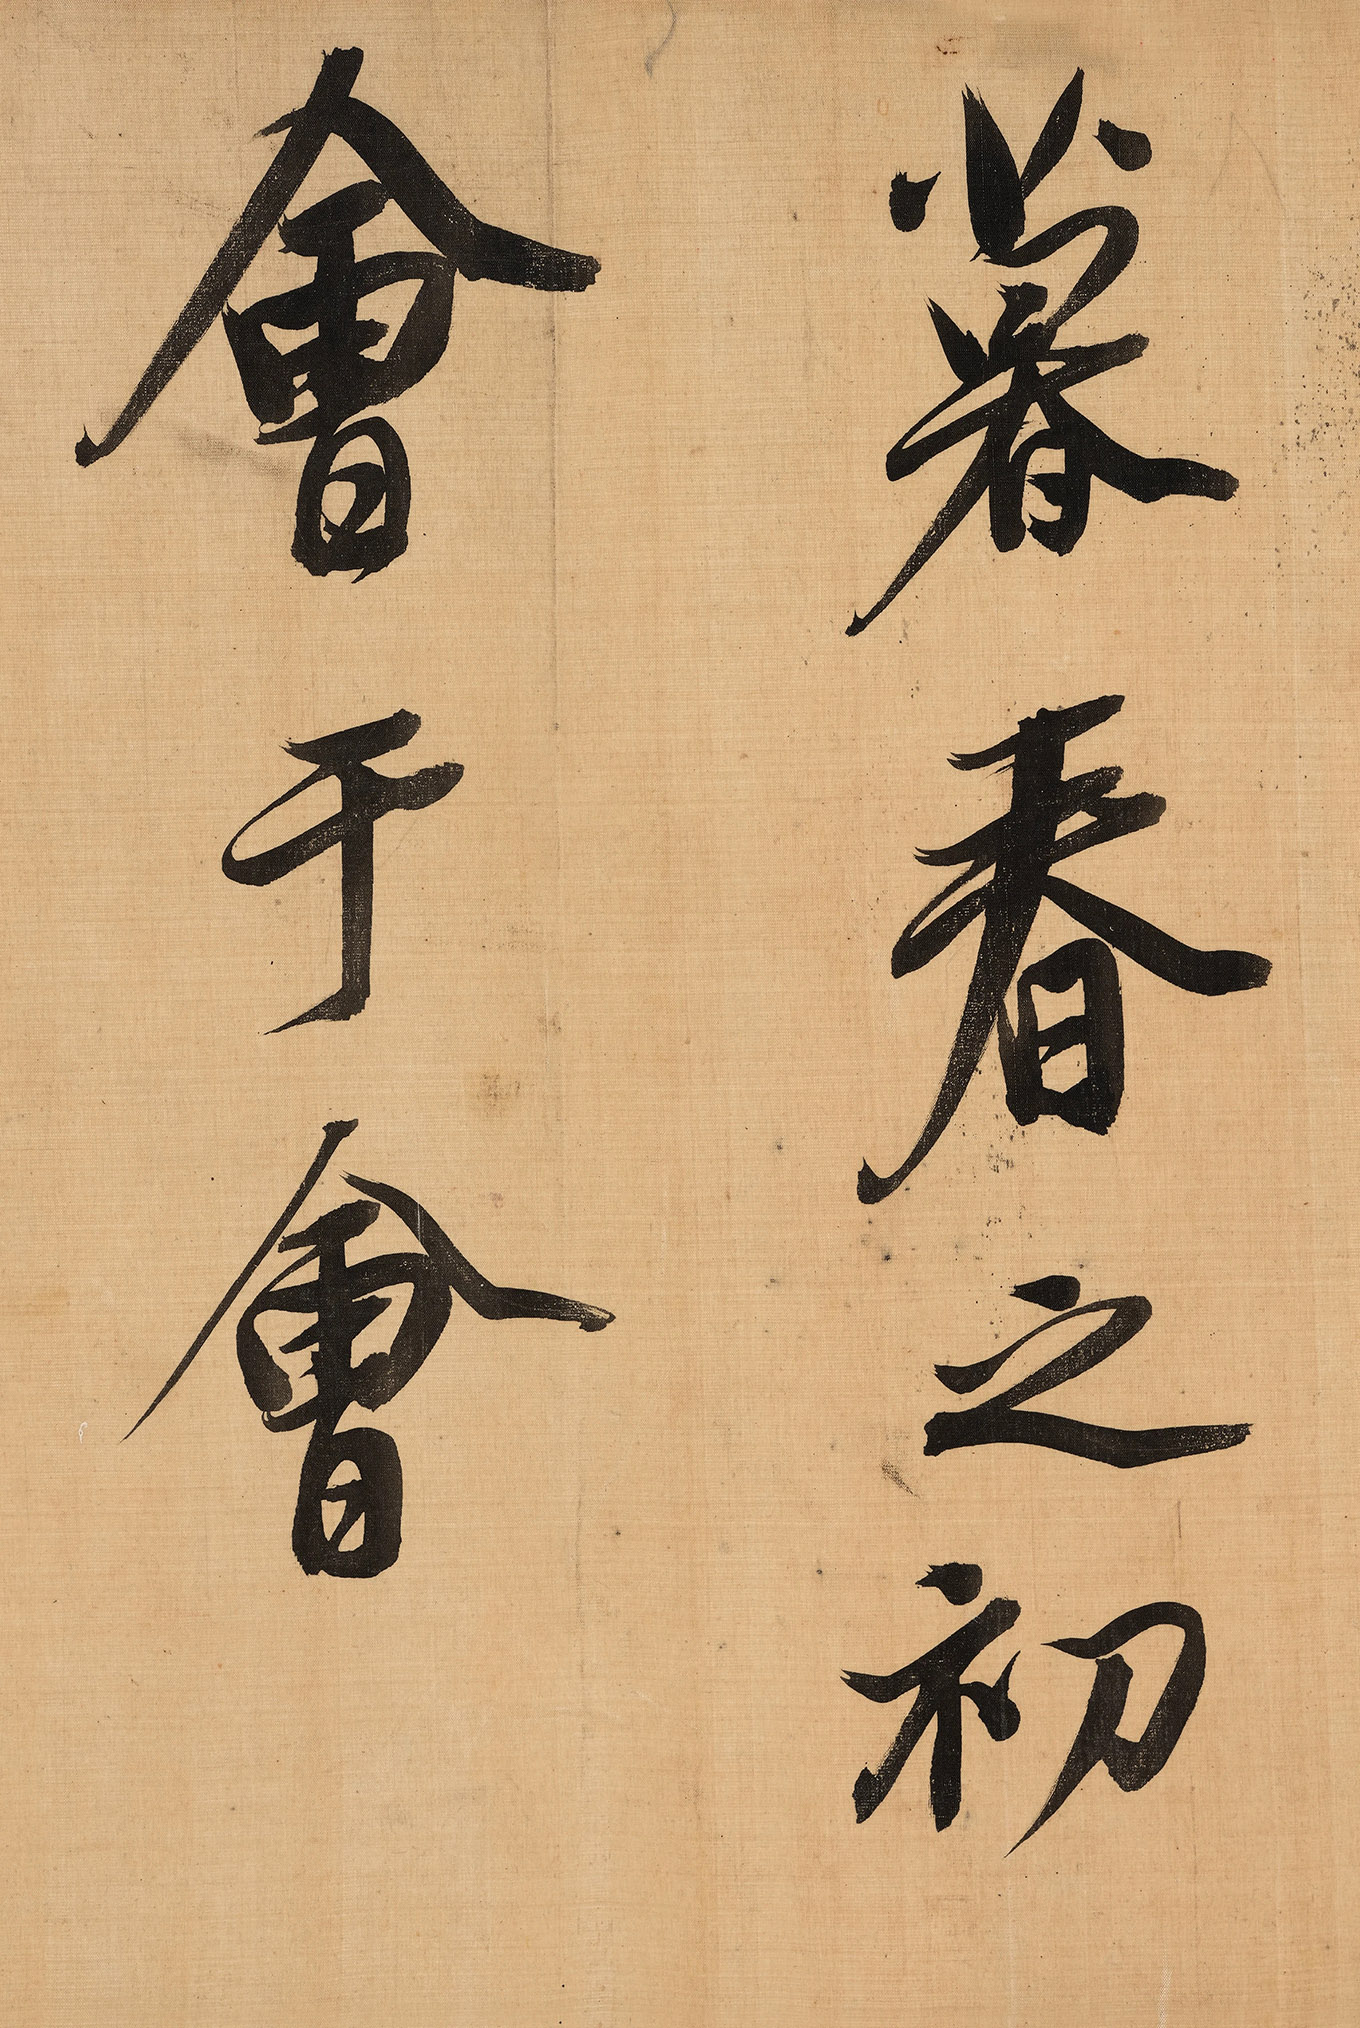 暮春之初
會于會